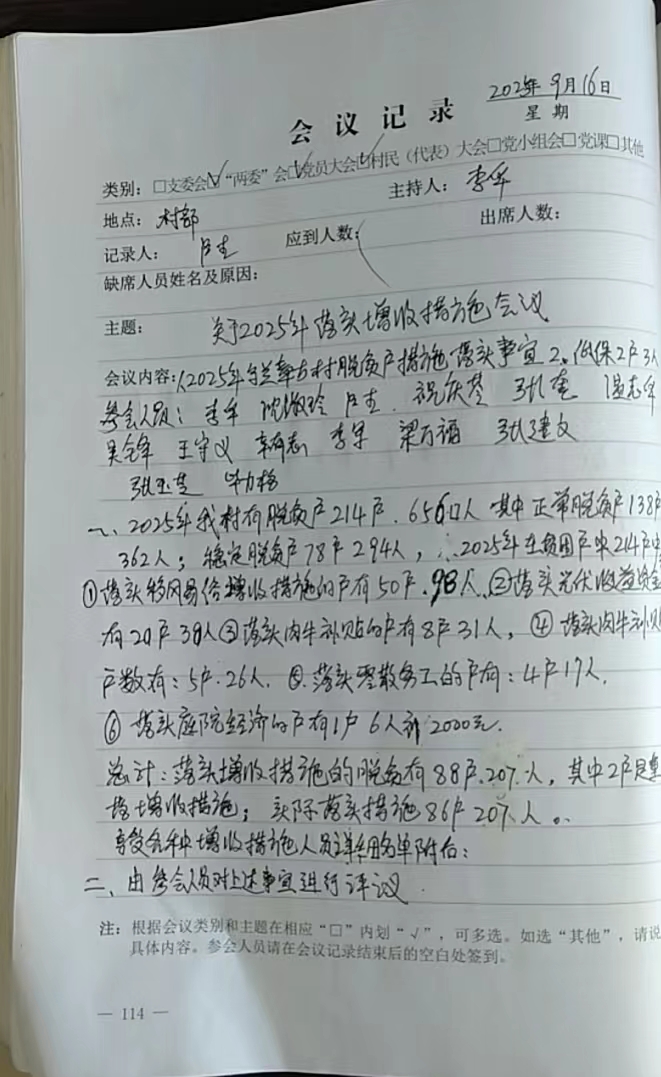 2025年9月16日
会议记录 星期
类别：□支委会☑“两委”会☑党员大会☑村民（代表）大会□党小组会□党课□其他
地点：村部 主持人：李军
记录人：卢生 应到人数： 出席人数：
缺席人员姓名及原因：
主题： 关于2025年落实增收措施会议
会议内容：1、2025年 村脱贫户措施落实事宜 2、低保2户3人
参会人员：李军 卢生 祝庆 张 温志军
吴全军 王守义 李军 梁万福 张建文
张玉芝
一、2025年我村有脱贫户214户.656口人 其中正常脱贫户138户
362人；稳定脱贫户78户294人， 2025年在贫困户中214户中
①落实移风易俗增收措施的户有50户.98人、②落实光伏收益资金
有20户 人③落实肉牛补贴的户有8户31人，④落实肉牛补贴
户数有：5户.26人. ⑤.落实零散务工的户有：4户17人.
⑥落实庭院经济的户有1户6人 2000元.
总计：落实增收措施的脱贫有88户.207.人，其中2户是重
落增收措施；实际落实措施86户207.人。
享受各种增收措施人员详细名单附后：
二、由参会人员对上述事宜进行评议.
注：根据会议类别和主题在相应“□”内划“√”，可多选。如选“其他”，请说
具体内容。参会人员请在会议记录结束后的空白处签到。
— 114 —